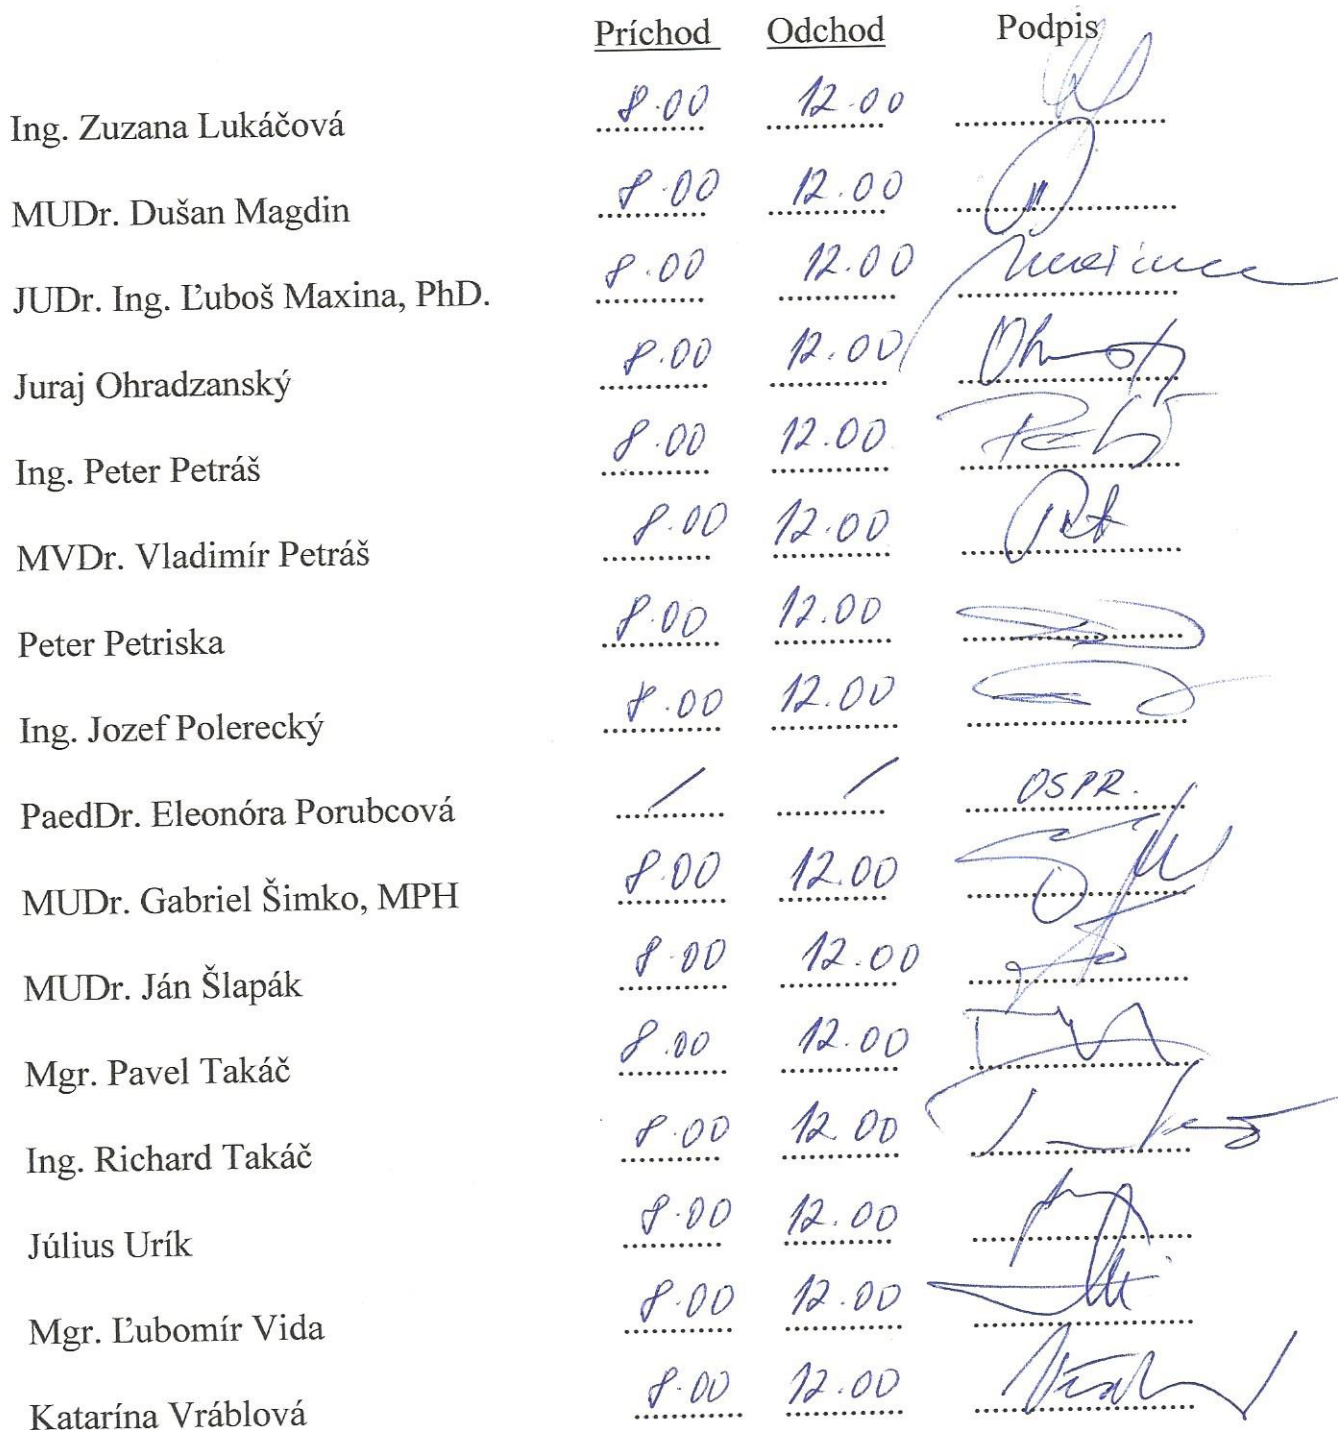 Príchod Odchod Podpis
Ing. Zuzana Lukáčová 8.00 12.00
MUDr. Dušan Magdin 8.00 12.00
JUDr. Ing. Ľuboš Maxina, PhD. 8.00 12.00
Juraj Ohradzanský 8.00 12.00
Ing. Peter Petráš 8.00 12.00
MVDr. Vladimír Petráš 8.00 12.00
Peter Petriska 8.00 12.00
Ing. Jozef Polerecký 8.00 12.00
PaedDr. Eleonóra Porubcová / / OSPR.
MUDr. Gabriel Šimko, MPH 8.00 12.00
MUDr. Ján Šlapák 8.00 12.00
Mgr. Pavel Takáč 8.00 12.00
Ing. Richard Takáč 8.00 12.00
Július Urík 8.00 12.00
Mgr. Ľubomír Vida 8.00 12.00
Katarína Vráblová 8.00 12.00